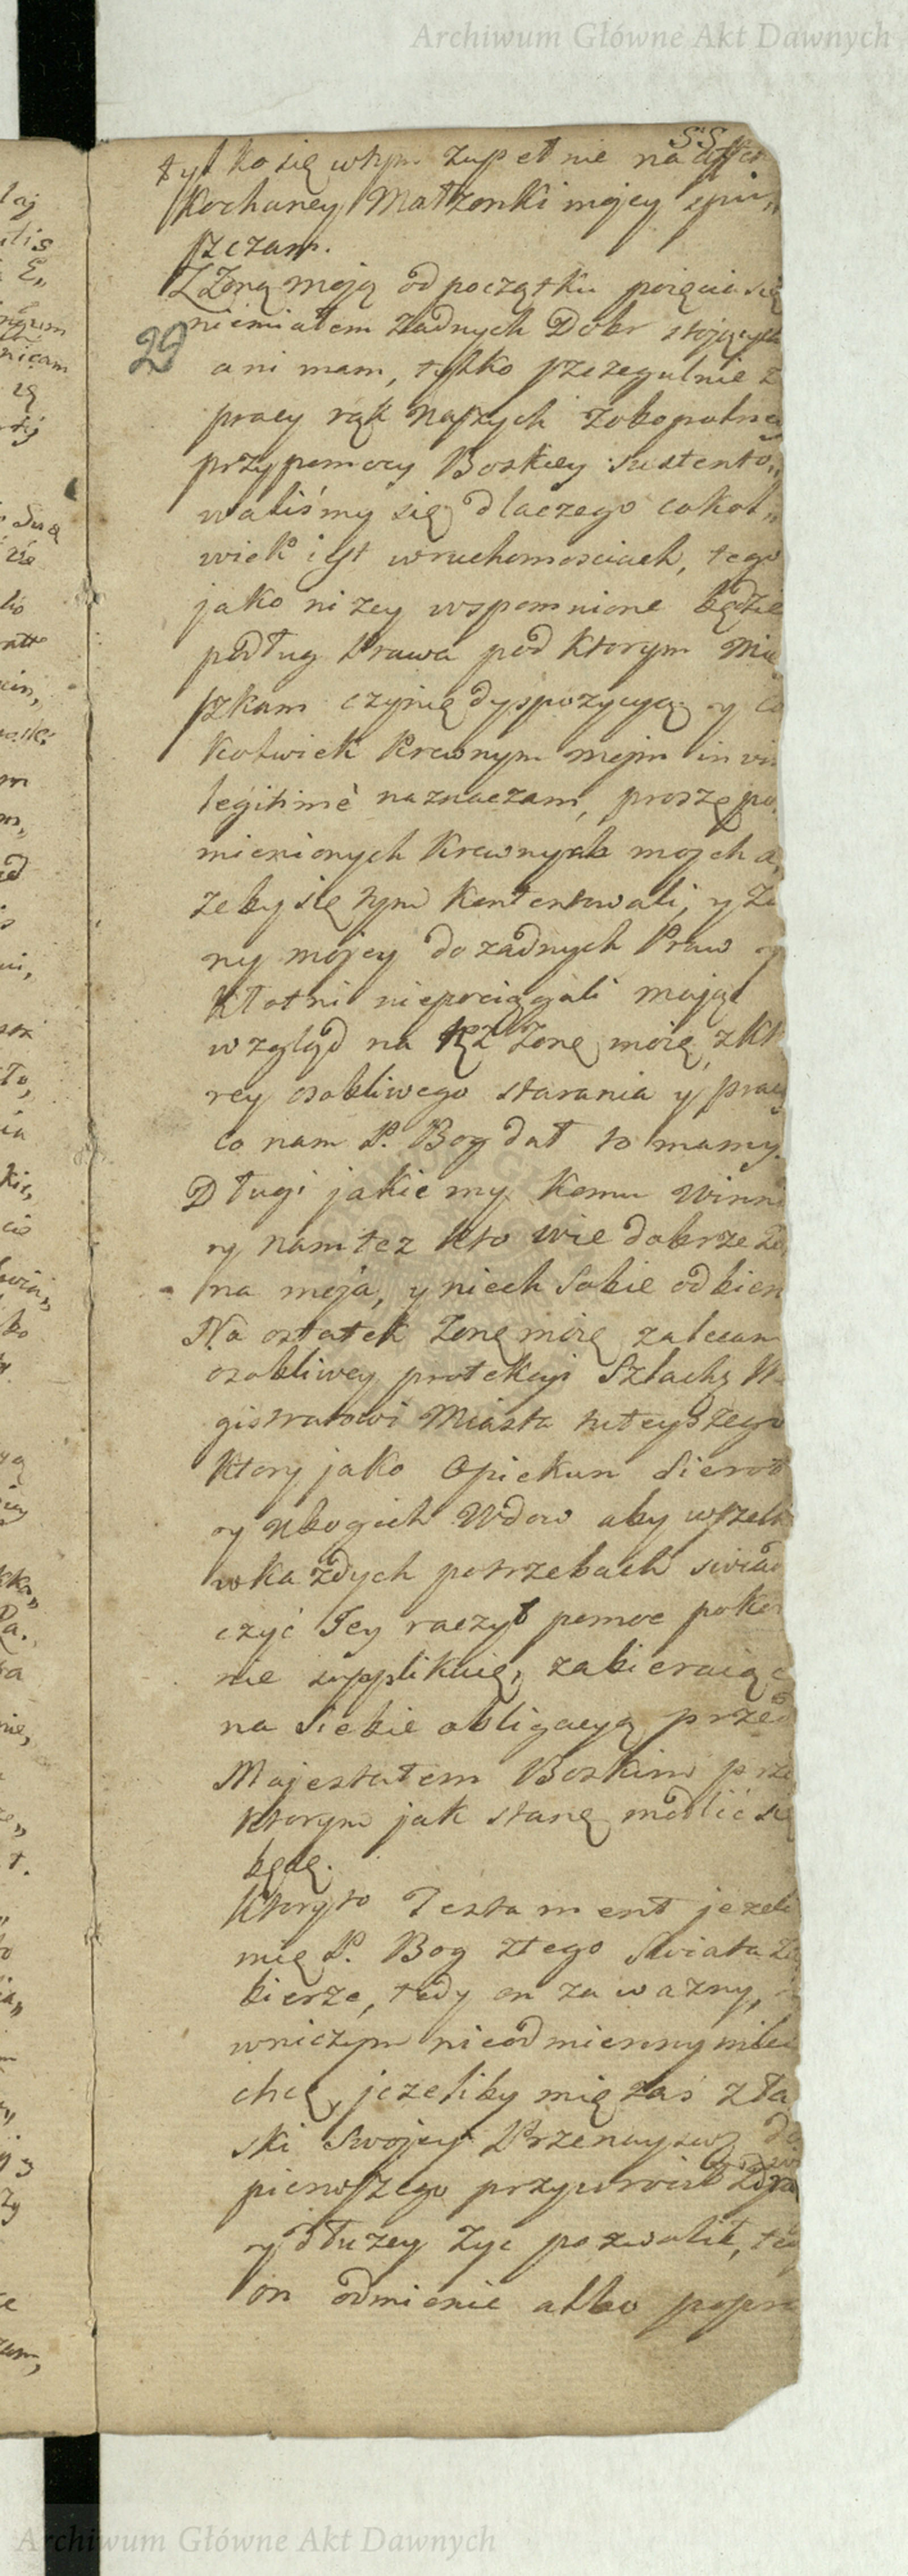 Archiwum Główne Akt Dawnych
55
tylko się w tym zupełnie na
Kochaney Małżonki mojey spu„
szczam.
Z Żoną moją od początku poięcia się
29
niemiałem żadnych Dobr stojących
ani mam, tylko szczegulnie z
pracy rąk naszych zobopolney
przy pomocy Boskiey sustento„
waliśmy się dlaczego cokol„
wiek iest w ruchomosciach, tego
jako niżey wspomnione będzie
podług Prawa pod ktorym Mie
szkam czynię dyspozycyą y co
kolwiek Krewnym mejm in vim
legitimè naznaczam, proszę po„
mienionych Krewnych mojch a„
żeby się tym kontentowali, y Żo
ny mojey do żadnych Praw y
Kłotni niepociągali mając
wzgląd na tęż Żonę moię, z kto
rey osobliwego starania y pracy
co nam P. Bog dał to mamy.
Długi jakie my komu winni
y nam też kto wie dobrze Żo
na moja, y niech sobie odbierze
Na ostatek Żonę moię zalecam
osobliwey protekcyi Szlach: Ma
gistratowi Miasta tuteyszego
Ktory jako Opiekun Sierot
y Ubogich Wdow aby wszelką
w każdych potrzebach swiad
czyć Jey raczył pomoc pokor
nie supplikuię, zabieraiąc
na siebie obligacyą przed
Majestatem Boskim przed
ktorym jak stanę modlić się
będę.
Ktoryto Testament jezeli
mię P. Bog z tego Swiata za
bierze, tedy on za ważny,
w niczym nieodmienny mieć
chcę, jeżeliby mię zaś z ła
ski Swojey Przenaysw: do
pierwszego przywrócił zdro
y dłużey żyć pozwolił, tedy
on odmienić albo popra
Archiwum Główne Akt Dawnych